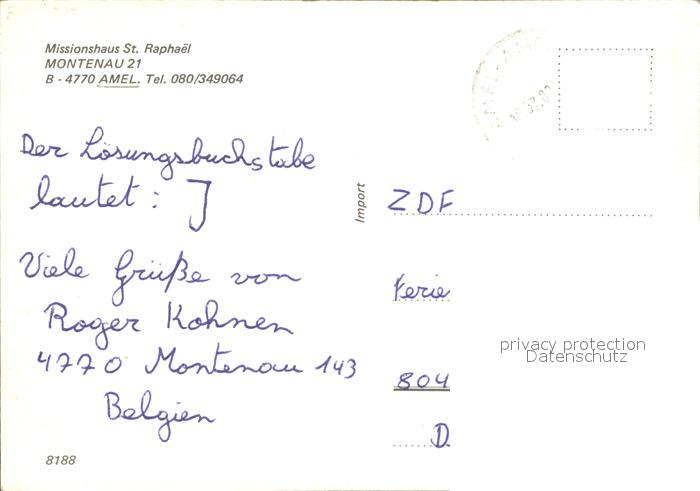 Missionshaus St. Raphaël
MONTENAU 21
B - 4770 AMEL. Tel. 080/349064
Der Lösungsbuchstabe
lautet : J
Viele Grüße von
Roger Kohnen
4770 Montenau 143
Belgien
8188
Import
ZDF
Ferie
804
D
privacy protection
Datenschutz